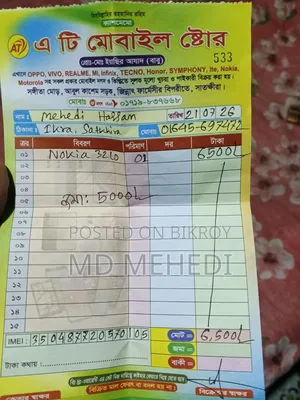 বিসমিল্লাহির রহমানির রহিম
ক্যাশমেমো
AT এ টি মোবাইল ষ্টোর
প্রোঃ-মোঃ ইয়াছির আযাদ (বাবু)
533
এখানে OPPO, VIVO, REALME, MI, Infinix, TECNO, Honor, SYMPHONY, Ite, Nokia,
Motorola সহ সকল প্রকার মোবাইল নগদ ও কিস্তিতে সুলভ মূল্যে খুচরা ও পাইকারী বিক্রয় করা হয়।
সঙ্গীতা মোড়, আবুল কাশেম সড়ক, জিল্লুর ফার্মেসীর বিপরীতে, সাতক্ষীরা।
মোবাঃ ০১৯১৯-৮৩৭৬৬৮
নামঃ Mehedi Hassan তারিখ 21/07.26
ঠিকানাঃ Ikra, Satkhira মোবাঃ 01645-697472
ক্রঃ বিবরণ পরিমাণ দর টাকা
০১ Nokia 3210 01 6500/
০২
০৩
০৪ জমা: 5000/
০৫
০৬
০৭
০৮
POSTED ON BIKROY
০৯
MD MEHEDI
১০
১১
১২
১৩
১৪
১৫
IMEI : 350487720570105 মোট 6,500/
জমা
টাকা কথায় : বাকী
বিক্রিত মাল ফেরৎ বা বদল হয় না।
ক্রেতার স্বাক্ষর বিক্রেতার স্বাক্ষর